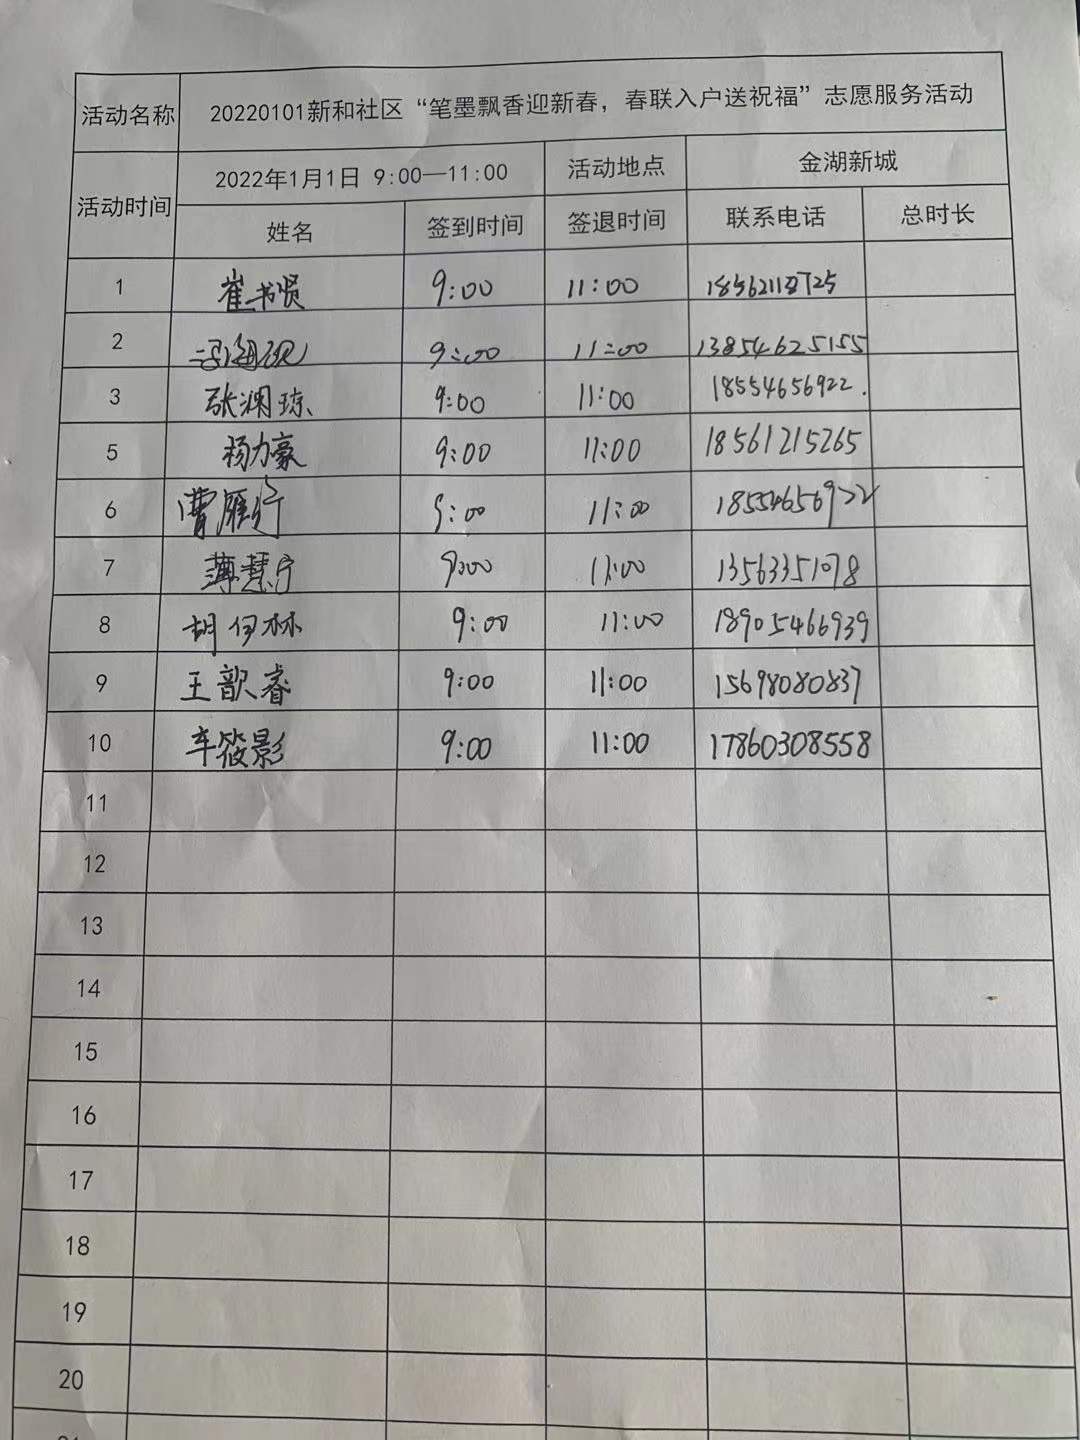 活动名称 20220101新和社区“笔墨飘香迎新春，春联入户送祝福”志愿服务活动
活动时间 2022年1月1日 9:00—11:00 活动地点 金湖新城
姓名 签到时间 签退时间 联系电话 总时长
1 崔书贤 9:00 11:00
2 9:00 11:00 13854625155
3 张澜琼 9:00 11:00 18554656922.
5 杨力豪 9:00 11:00 18561215265
6 曹雁行 9:00 11:00 18554656922
7 薄慧宁 9:00 11:00 13563351078
8 胡伊林 9:00 11:00 18905466939
9 王歆睿 9:00 11:00 15698080837
10 车筱影 9:00 11:00 17860308558
11
12
13
14
15
16
17
18
19
20